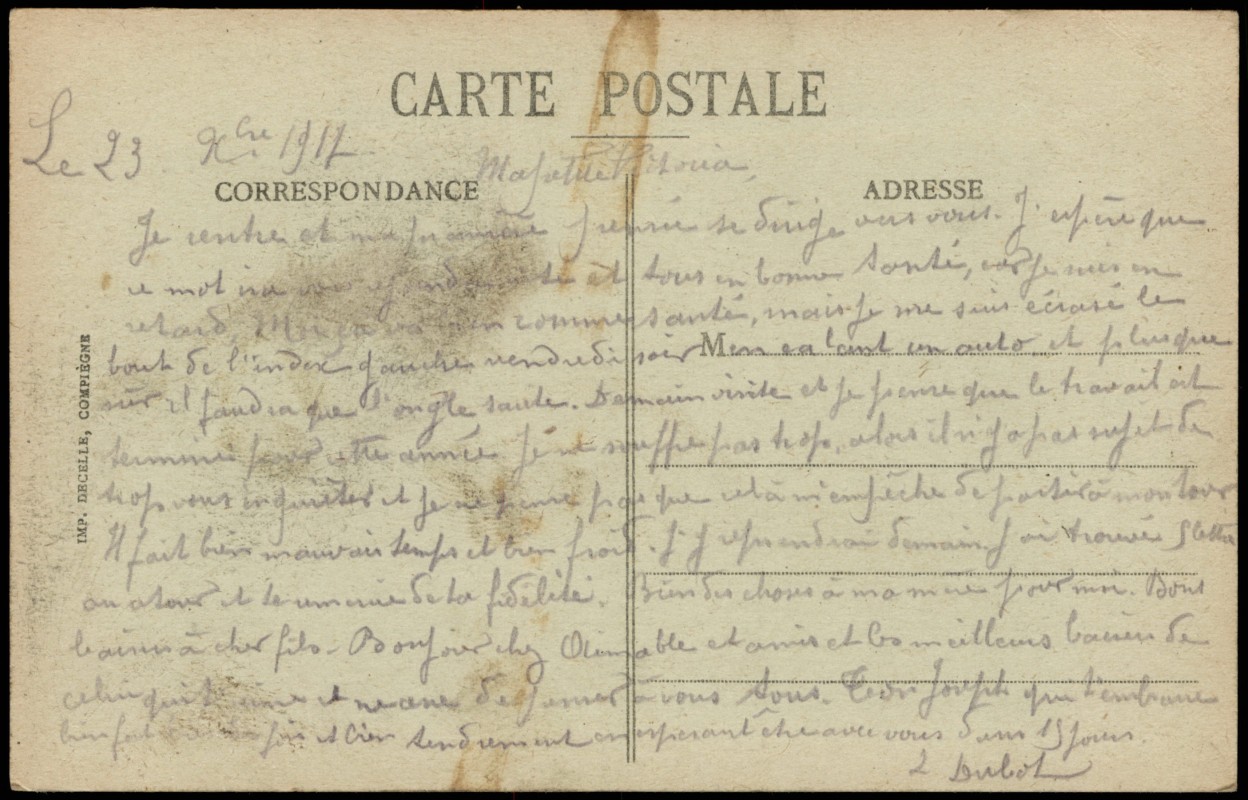 CARTE POSTALE
Le 23 Xbre 1917
Ma petite Victoria,
CORRESPONDANCE
ADRESSE
Je rentre et ma première pensée se dirige vers vous. J'espère que
ce mot ira vous et tous en bonne santé, car je suis en
retard. Moi ça va comme santé, mais je me suis écrasé le
bout de l'index gauche vendredi soir en calant un auto et plus que
M
sûr il faudra que l'ongle saute. Demain visite et je pense que le travail est
terminé pour cette année. Je ne souffre pas trop, alors il n'y a pas sujet de
trop vous inquiéter et je ne pense pas que cela m'empêche de partir à mon tour
Il fait bien mauvais temps et bien froid. J'y reprendrai demain. J'ai trouvé 5 lettres
au atour et te remercie de ta fidélité. Bien des choses à ma mère pour moi. Bons
baisers à cher fils. Bonjour chez et amis et les meilleurs baisers de
celui qui t'aime et ne cesse de penser à vous tous. Ton Joseph qui t'embrasse
bien fort fois et bien tendrement en espérant être avec vous dans 15 jours.
Dubot
IMP. DECELLE, COMPIÈGNE